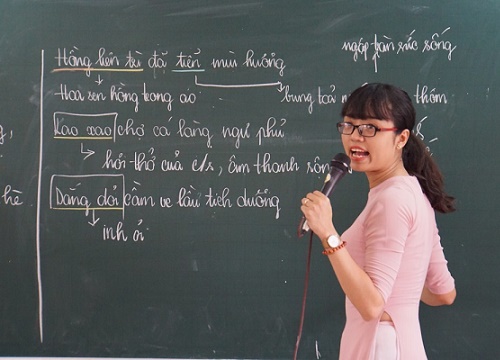 ngập tràn sức sống
Hồng liên trì đã tiễn mùi hương
Hoa sen hồng trong ao bung toả thơm
Lao xao chợ cá làng ngư phủ
hơi thở của c/s, âm thanh
hè
Dắng dỏi cầm ve lầu tịch dương
inh ỏi